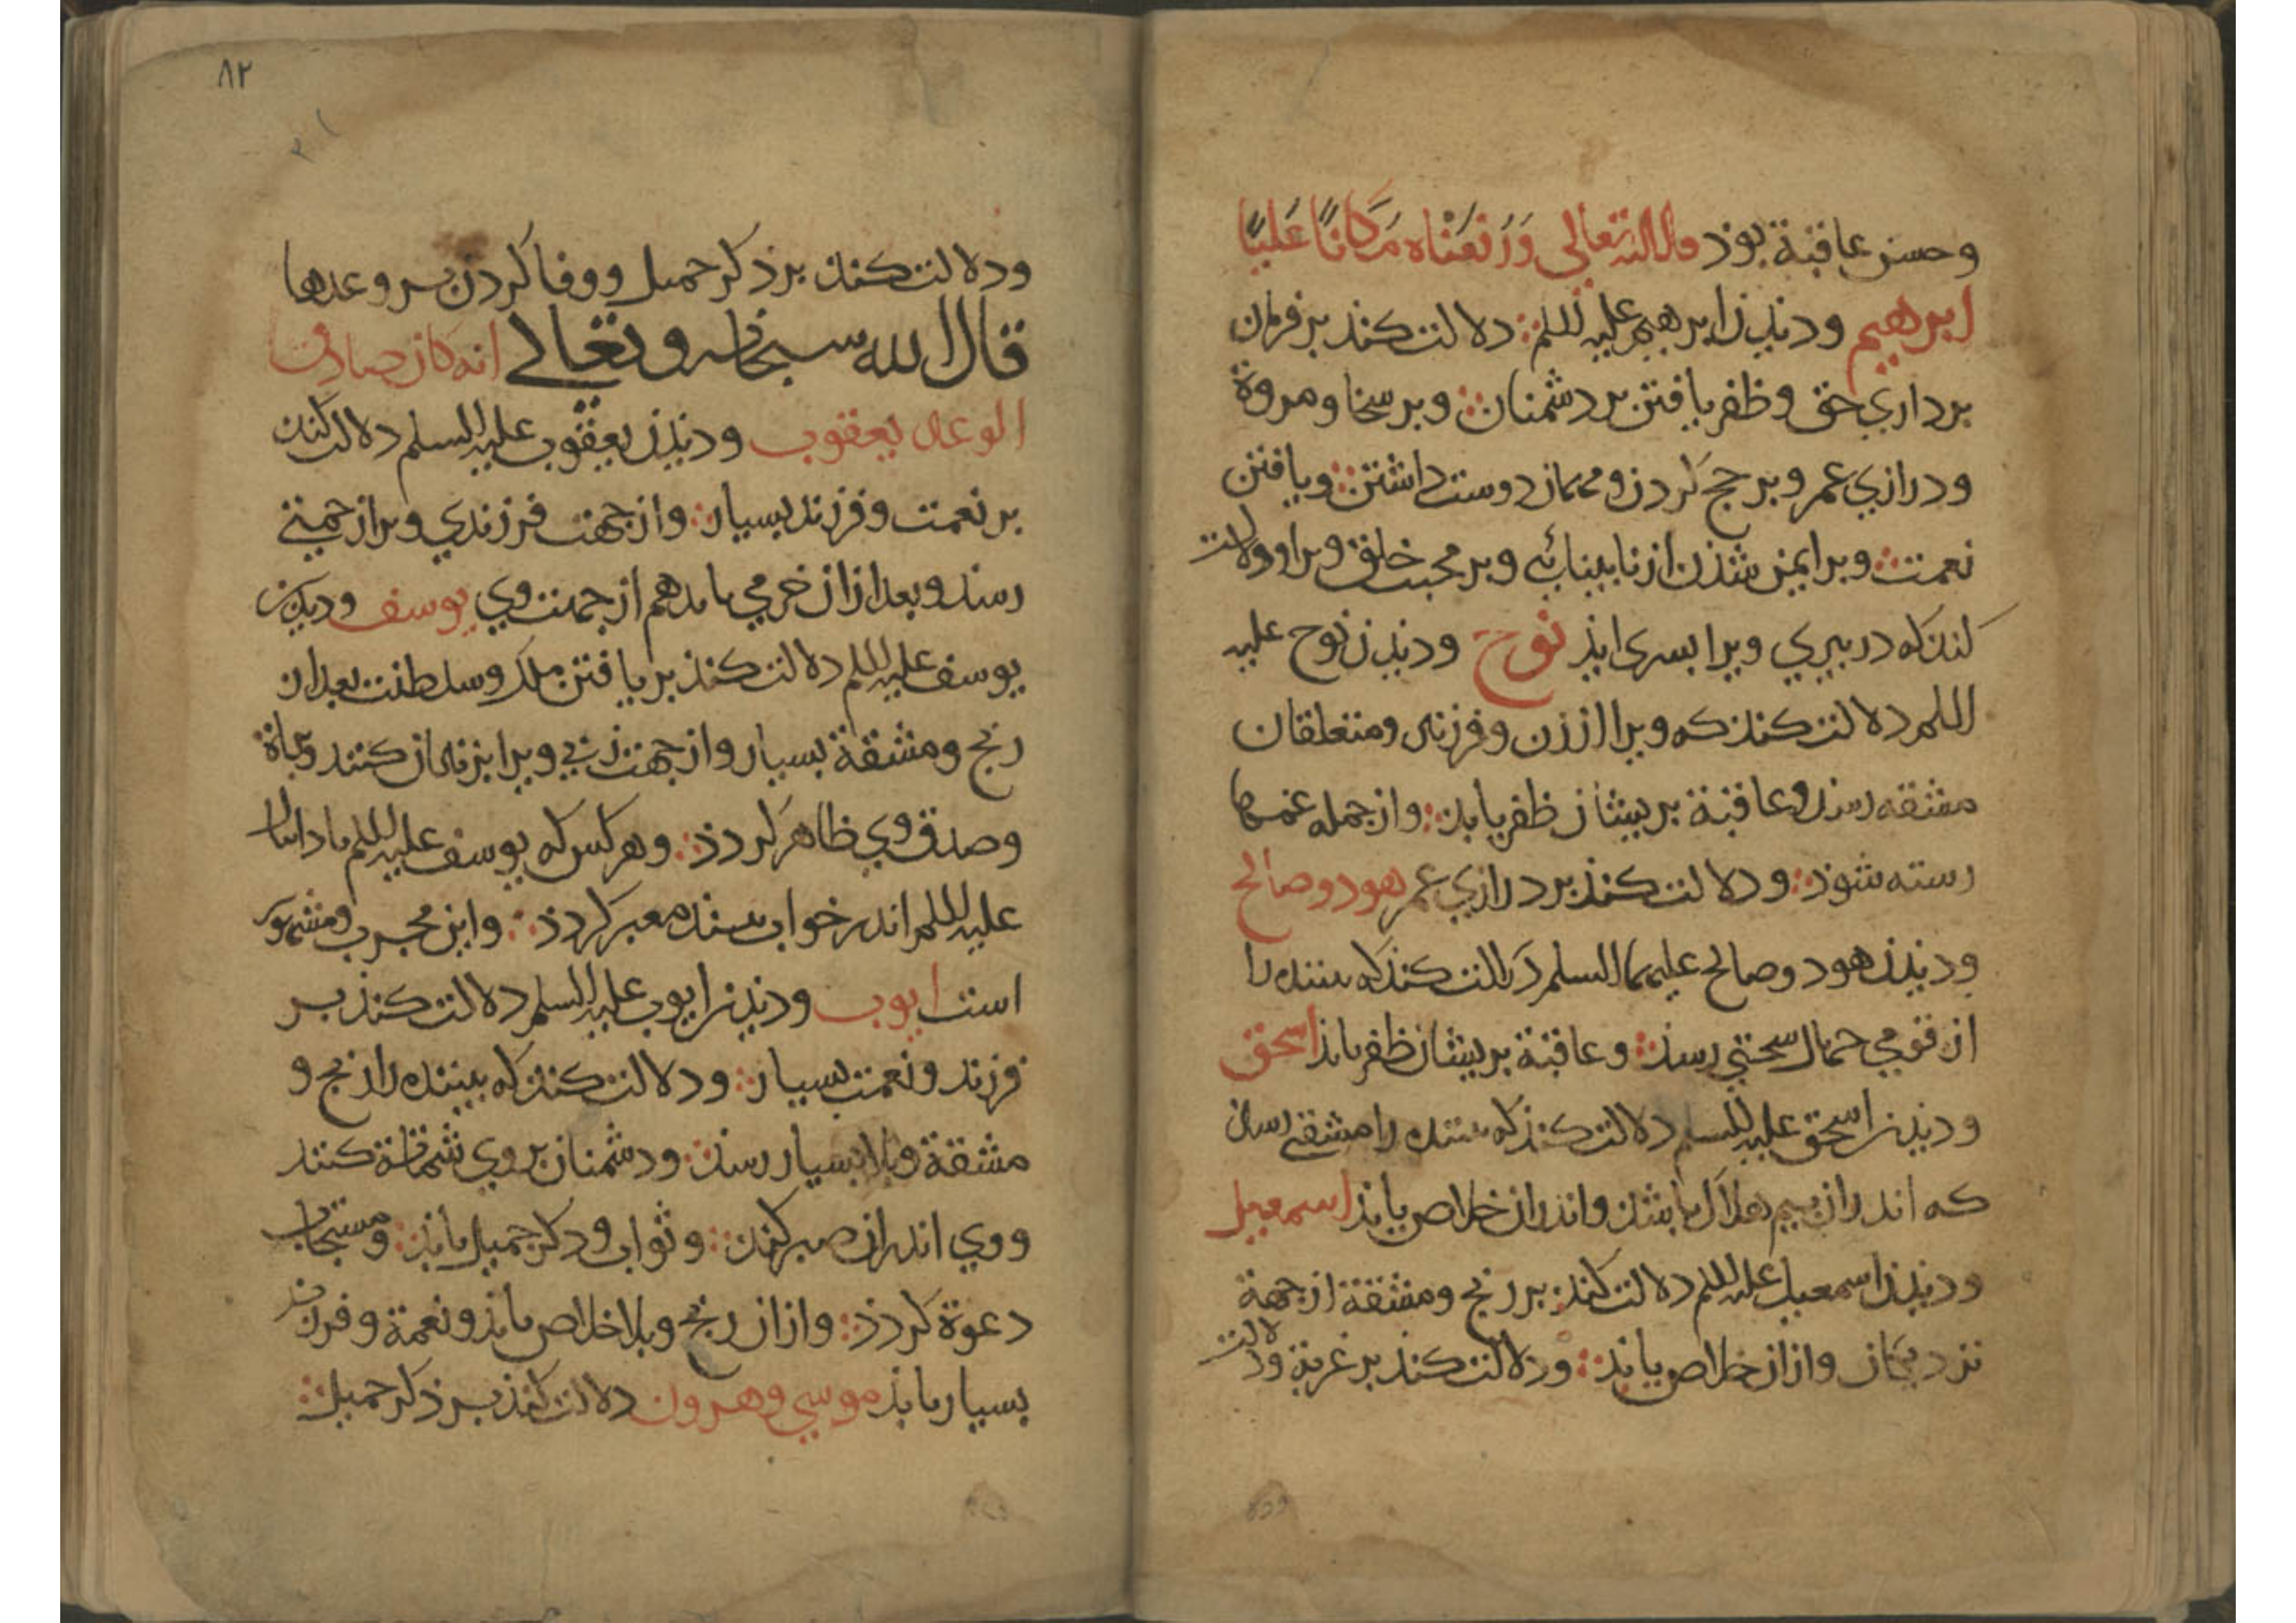 وحسن عاقبة بوذ قال الله تعالى وَرَفَعْنَاه مَكَانًا عَلِيًّا
ابرهيم وديذن ابرهيم عليه السلم دلالت كند بر فرمان
برداري حق وظفر يافتن بر دشمنان وبر سخا ومروة
ودرازي عمر وبر حج كردن ومهمان دوست داشتن ويافتن
نعمت وبر ايمن شذن از نابينائي وبر محبت خلق وبر او دلالت
كند كه در پيري ويرا پسرى ايذ نوح وديذن نوح عليه
السلم دلالت كند كه ويرا از زن وفرزند ومتعلقان
مشقه رسد وعاقبة بريشان ظفر يابد واز جمله غمها
رسته شوذ ودلالت كند بر درازي عمر هود وصالح
وديذن هود وصالح عليهما السلم دلالت كند كه بيننده را
از قومي جهال سختي رسد وعاقبة بريشان ظفر يابذ اسحق
وديذن اسحق عليه السلم دلالت كند كه بيننده را مشقتي رسد
كه اندران بيم هلاك باشد واندران خلاص يابذ اسمعيل
وديذن اسمعيل عليه السلم دلالت كند بر رنج ومشقة از جهة
نزديكان وازان خلاص يابذ ودلالت كند بر غربة ولادت
٨٢
ودلالت كند بر ذكر جميل ووفا كردن بر وعدها
قال الله سبحانه وتعالى انه كان صادق
الوعد يعقوب وديذن يعقوب عليه السلم دلالت كند
بر نعمت وفرزند بسيار واز جهت فرزندي ويرا زحمتي
رسد وبعد ازان خرمي يابد هم از جهت وي يوسف وديذن
يوسف عليه السلم دلالت كند بر يافتن ملك وسلطنت بعد از
رنج ومشقة بسيار واز جهت زني ويرا بزندان كنند
وصدق وي ظاهر كردذ وهر كس كه يوسف عليه السلم يا دانيال
عليه السلم اندر خواب بيند معبر كردذ واين مجرب ومشهور
است ايوب وديذن ايوب عليه السلم دلالت كند بر
فرزند ونعمت بسيار ودلالت كند كه بيننده را رنج و
مشقة وبلا بسيار رسد ودشمنان بر وي شماتة كنند
ووي اندران صبر كند وثواب وذكر جميل يابذ ومستجاب
دعوة كردذ وازان رنج وبلا خلاص يابذ ونعمة وفرزند
بسيار يابذ موسي وهرون دلالت كند بر ذكر جميل